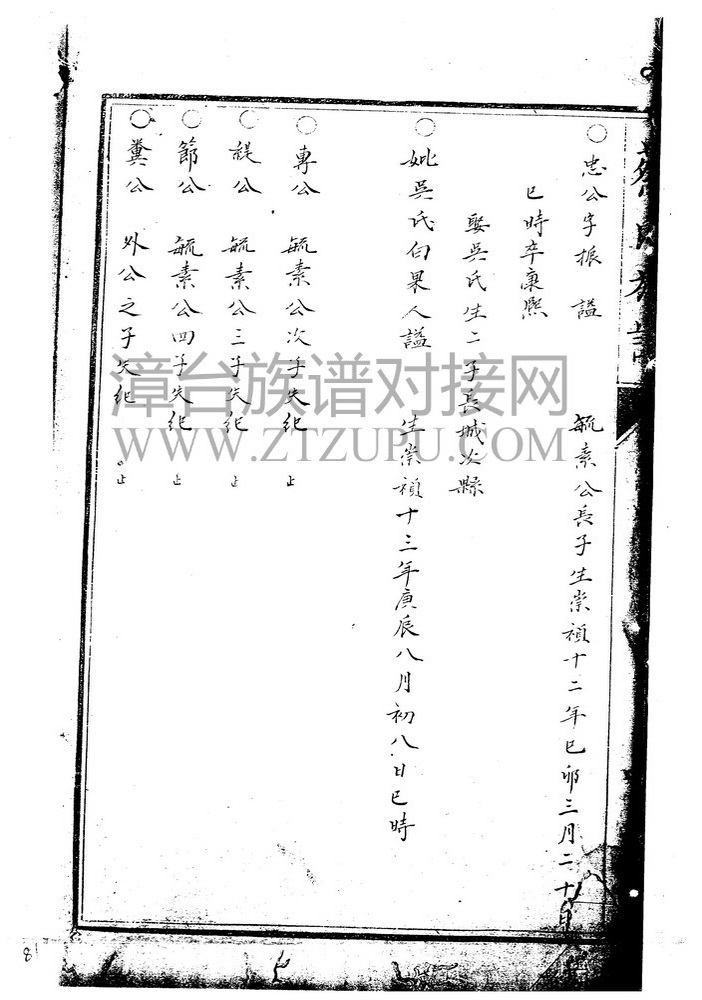 忠公字振 謚 毓素公長子生崇禎十二年巳卯三月二十日
巳時卒康熙
娶吳氏生二子長城次縣
妣吳氏白果人謚 生崇禎十三年庚辰八月初八日巳時
專公 毓素公次子失紀 止
公 毓素公三子失紀 止
節公 毓素公四子失紀 止
糞公 外公之子失紀 止
漳台族谱对接网
WWW.ZTZUPU.COM
81